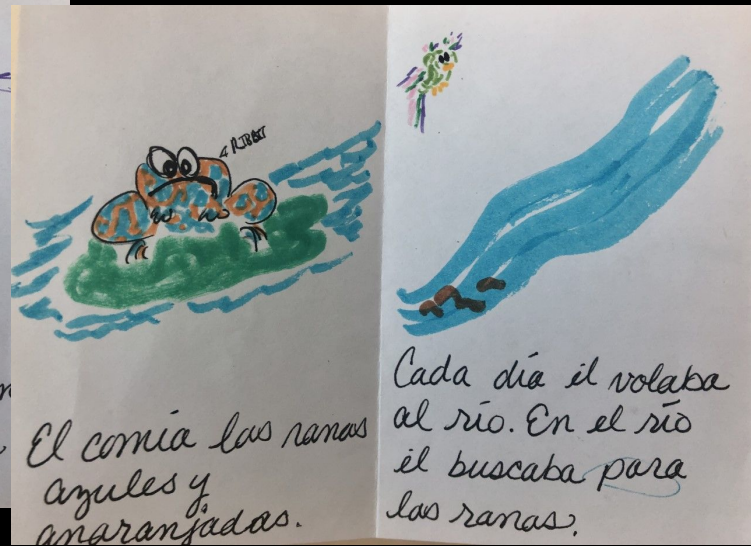 RIBBIT
El comía las ranas
azules y
anaranjadas.
Cada día él volaba
al río. En el río
él buscaba para
las ranas.